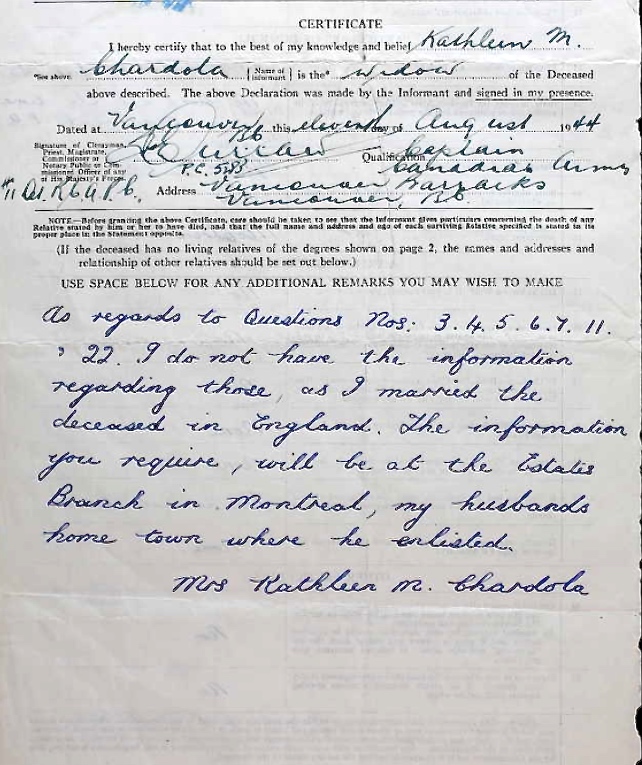 CERTIFICATE
I hereby certify that to the best of my knowledge and belief Kathleen M.
*See above. Chardola { Name of Informant } is the* widow of the Deceased
above described. The above Declaration was made by the Informant and signed in my presence.
Dated at Vancouver BC this eleventh day of August 1944
Signature of Clergyman,
Priest, Magistrate,
Commissioner or
Notary Public or Com-
missioned Officer of any
of His Majesty's Forces.
Qualification Captain
Canadian Army
Address Vancouver Barracks
Vancouver, BC
NOTE.—Before granting the above Certificate, care should be taken to see that the Informant gives particulars concerning the death of any
Relative stated by him or her to have died, and that the full name and address and age of each surviving Relative specified is stated in its
proper place in the Statement opposite.
(If the deceased has no living relatives of the degrees shown on page 2, the names and addresses and
relationship of other relatives should be set out below.)
USE SPACE BELOW FOR ANY ADDITIONAL REMARKS YOU MAY WISH TO MAKE
As regards to Questions Nos: 3. 4. 5. 6. 7. 11.
" 22. I do not have the information
regarding those, as I married the
deceased in England. The information
you require, will be at the Estates
Branch in Montreal, my husbands
home town where he enlisted.
Mrs Kathleen M. Chardola